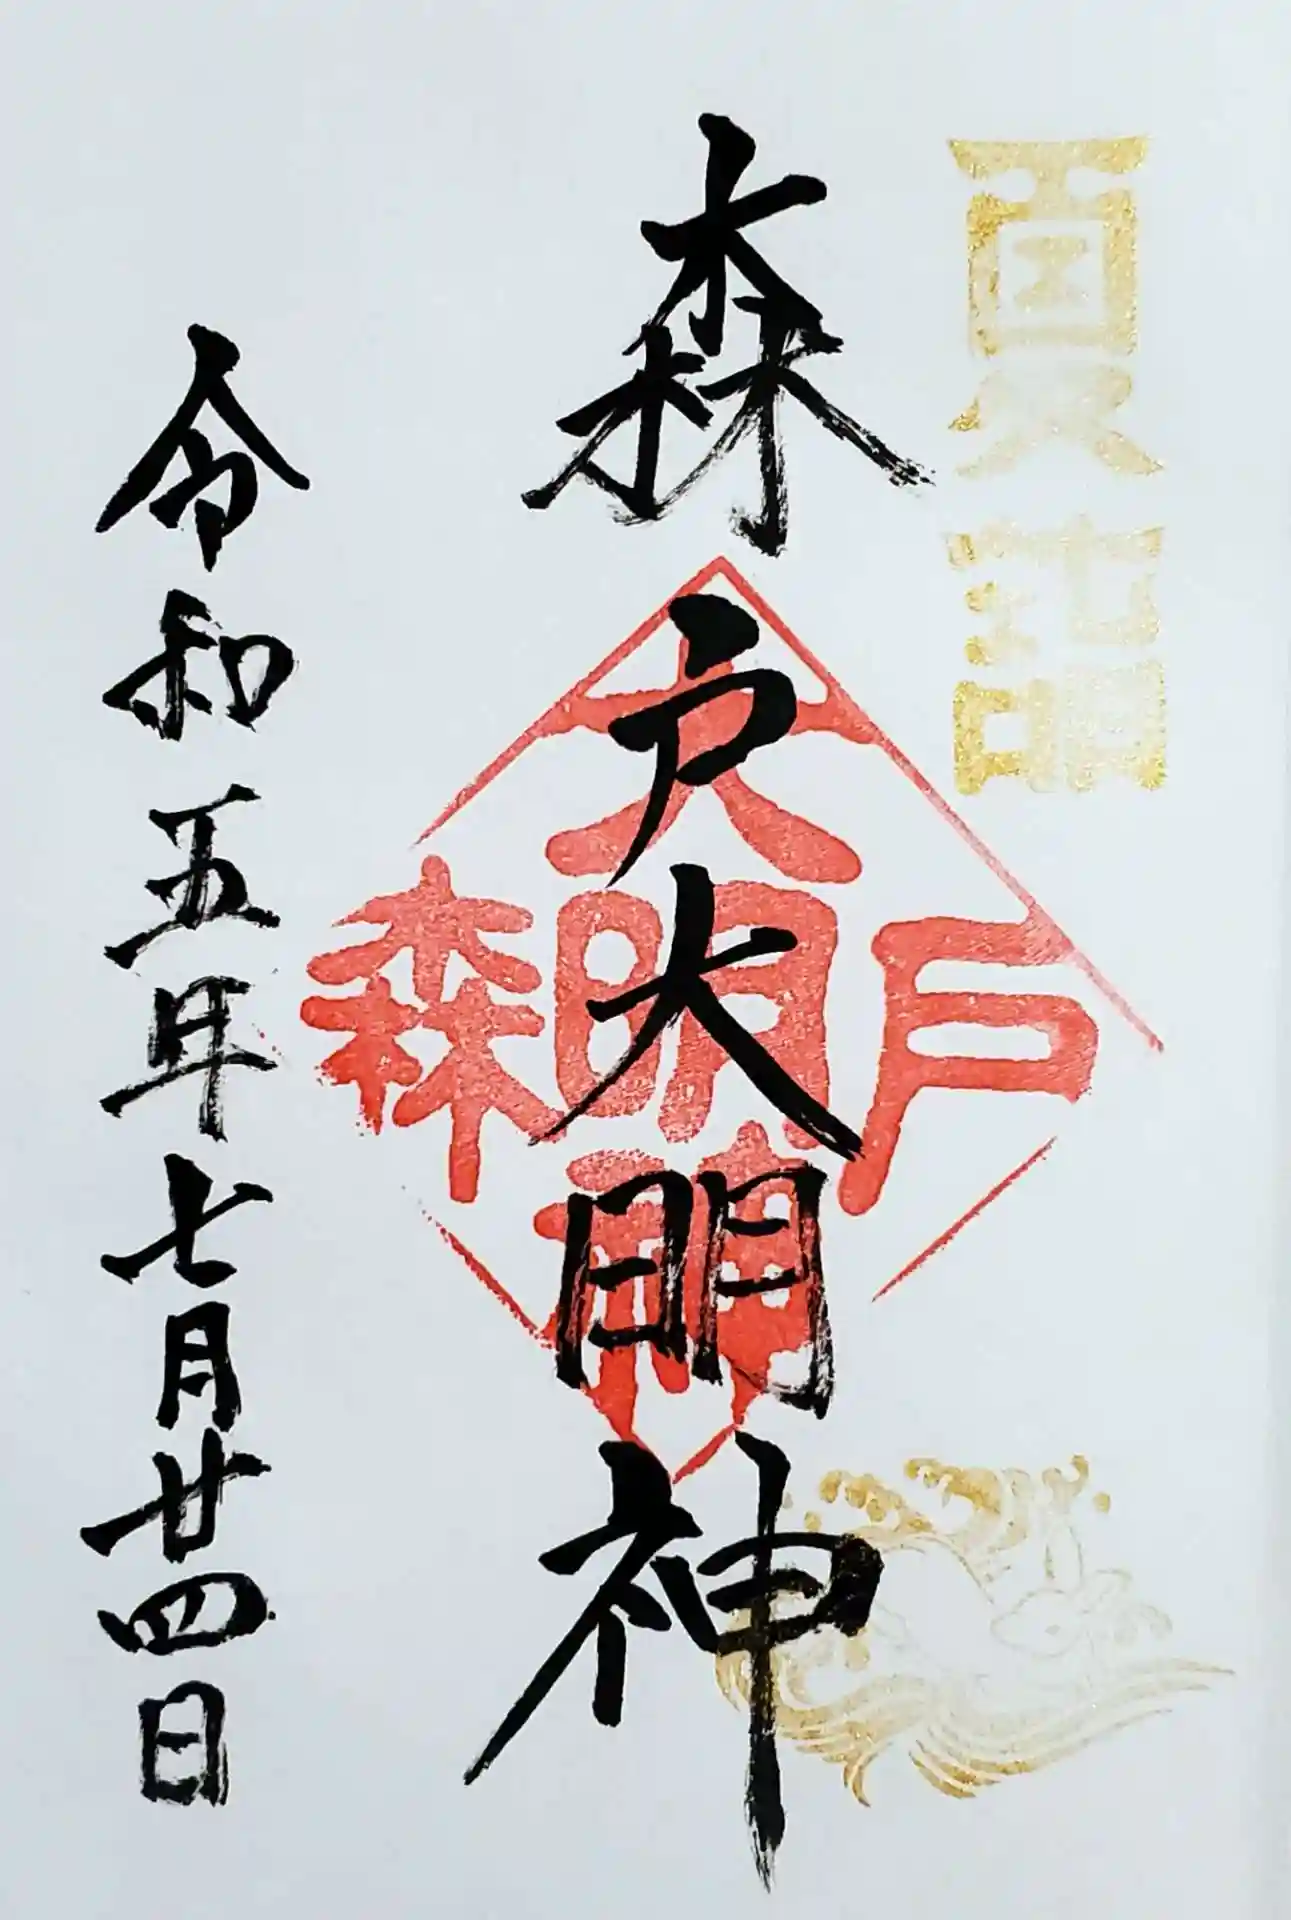 夏詣
森戸大明神
大
森明戸
神
令和五年七月廿四日